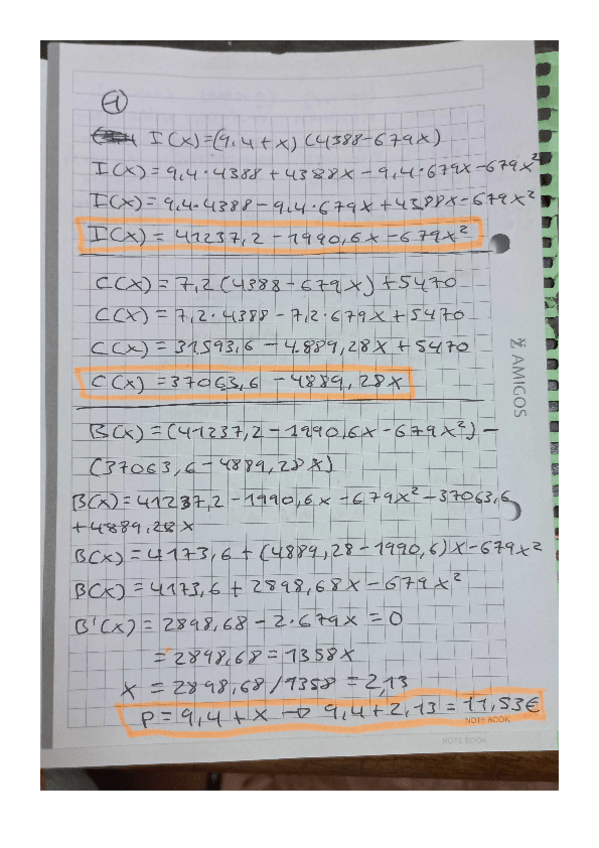 1
I(x)=(9,4+x)(4388-679x)
I(x)=9,4·4388+4388x-9,4·679x-679x²
I(x)=9,4·4388-9,4·679x+4388x-679x²
I(x)=41237,2-1990,6x-679x²
C(x)=7,2(4388-679x)+5470
C(x)=7,2·4388-7,2·679x+5470
C(x)=31593,6-4.889,28x+5470
C(x)=37063,6-4889,28x
AMIGOS
B(x)=(41237,2-1990,6x-679x²)-
(37063,6-4889,28x)
B(x)=41237,2-1990,6x-679x²-37063,6
+4889,28x
B(x)=4173,6+(4889,28-1990,6)x-679x²
B(x)=4173,6+2898,68x-679x²
B'(x)=2898,68-2·679x=0
=2898,68=1358x
x=2898,68/1358=2,13
P=9,4+x→9,4+2,13=11,53€
NOTE BOOK
NOTE BOOK